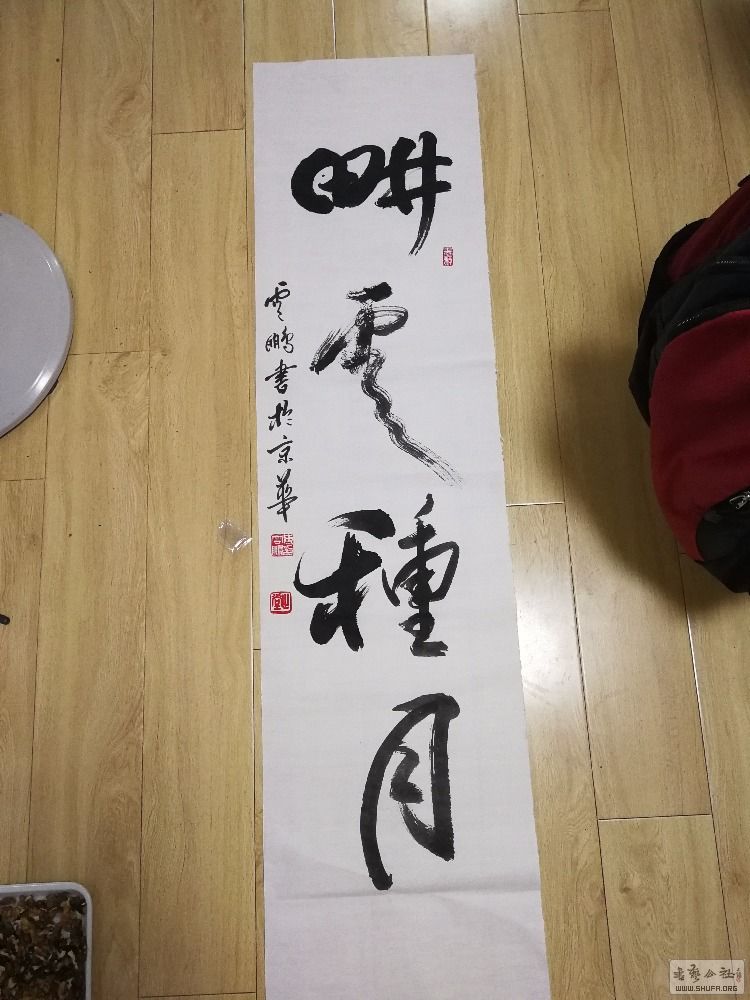 畊雲種月
雲鵬書於京華
书艺公社
WWW.SHUFA.ORG